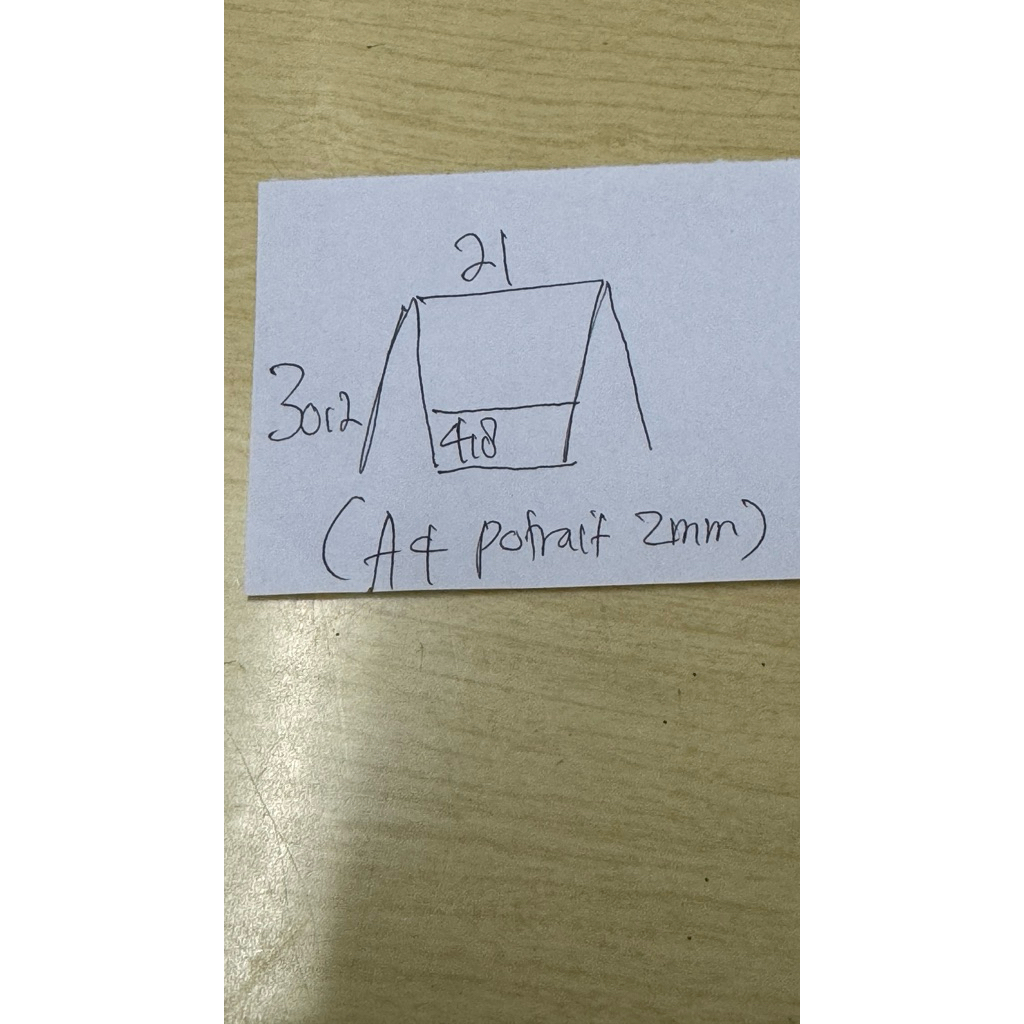 21
30,2
4,8
(A4 potrait 2mm)